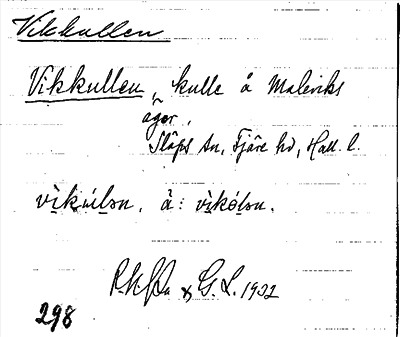 Vikkullen
Vikkullen, kulle å Maleviks
ägor,
Släps sn, Fjäre hd, Hall. l.
vìkúlən. ä: vìkólən.
& G. L. 1932
298